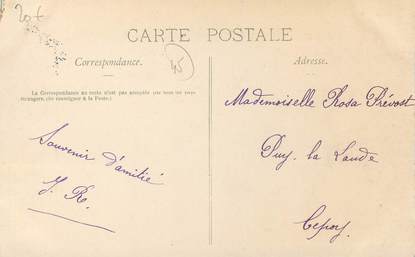 20 t
CARTE POSTALE
Correspondance.
45
Adresse.
La Correspondance au recto n'est pas acceptée par tous les pays
étrangers. (Se renseigner à la Poste.)
Souvenir d'amitié
J. R.
Mademoiselle Rosa Prévost
Puy. la Laude
Cepoy.